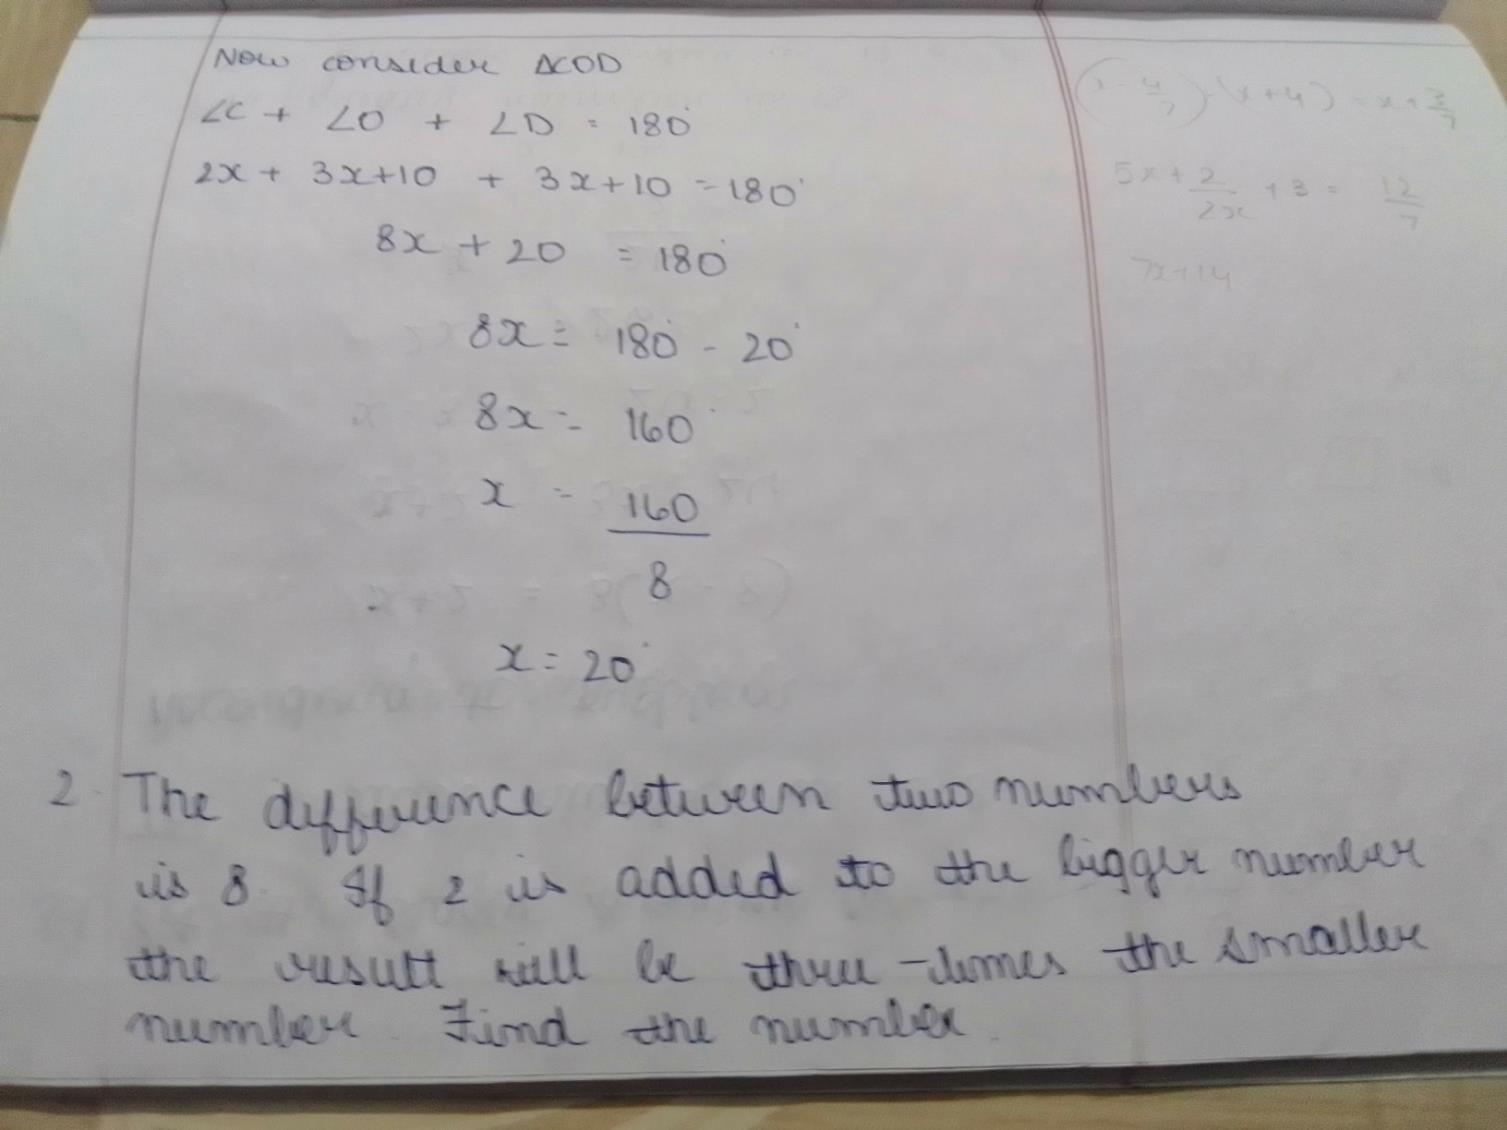 Now consider ΔCOD
∠C + ∠O + ∠D = 180°
2x + 3x+10 + 3x+10 = 180°
8x + 20 = 180°
8x = 180° - 20°
8x = 160°
x = 160
8
x = 20°
2. The difference between two numbers
is 8. If 2 is added to the bigger number
the result will be three-times the smaller
number. Find the number.
5x + 2
2x
+ 3 = 12
7
7x+14